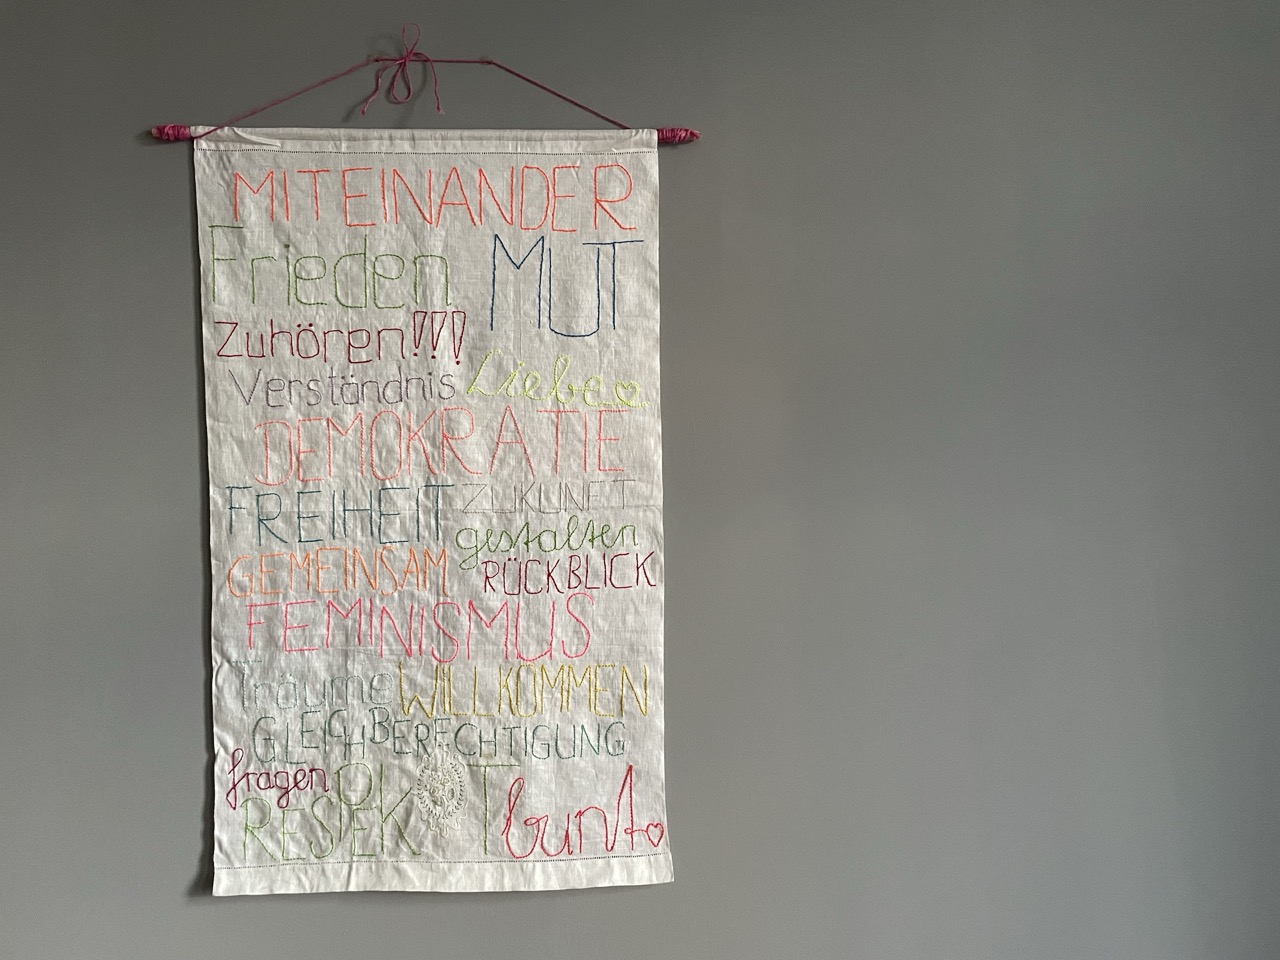 MITEINANDER
Frieden MUT
Zuhören!!!
Verständnis Liebe
DEMOKRATIE
FREIHEIT ZUKUNFT
gestalten
GEMEINSAM RÜCKBLICK
FEMINISMUS
Träume WILLKOMMEN
GLEICHBERECHTIGUNG
fragen
RESPEKT bunt